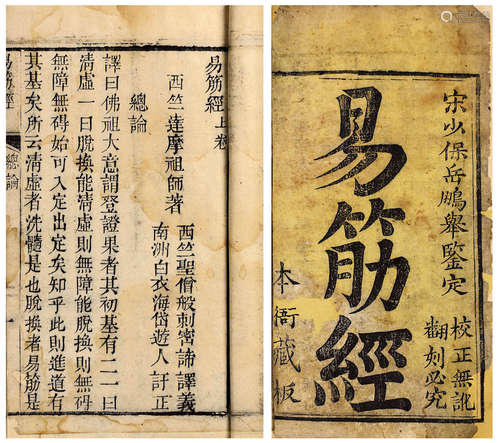 易筋經上卷
西竺達摩祖師著
西竺聖僧般剌密諦譯義
南洲白衣海岱遊人訂正
總論
譯曰佛祖大意謂登證果者其初基有二一曰
清虛一曰脫換能清虛則無障能脫換則無碍
無障無碍始可入定出定矣知乎此則進道有
其基矣所云清虛者洗髓是也脫換者易筋是
易筋經
總論
一
宋少保岳鵬舉鑒定
校正無訛
翻刻必究
易筋經
本衙藏板